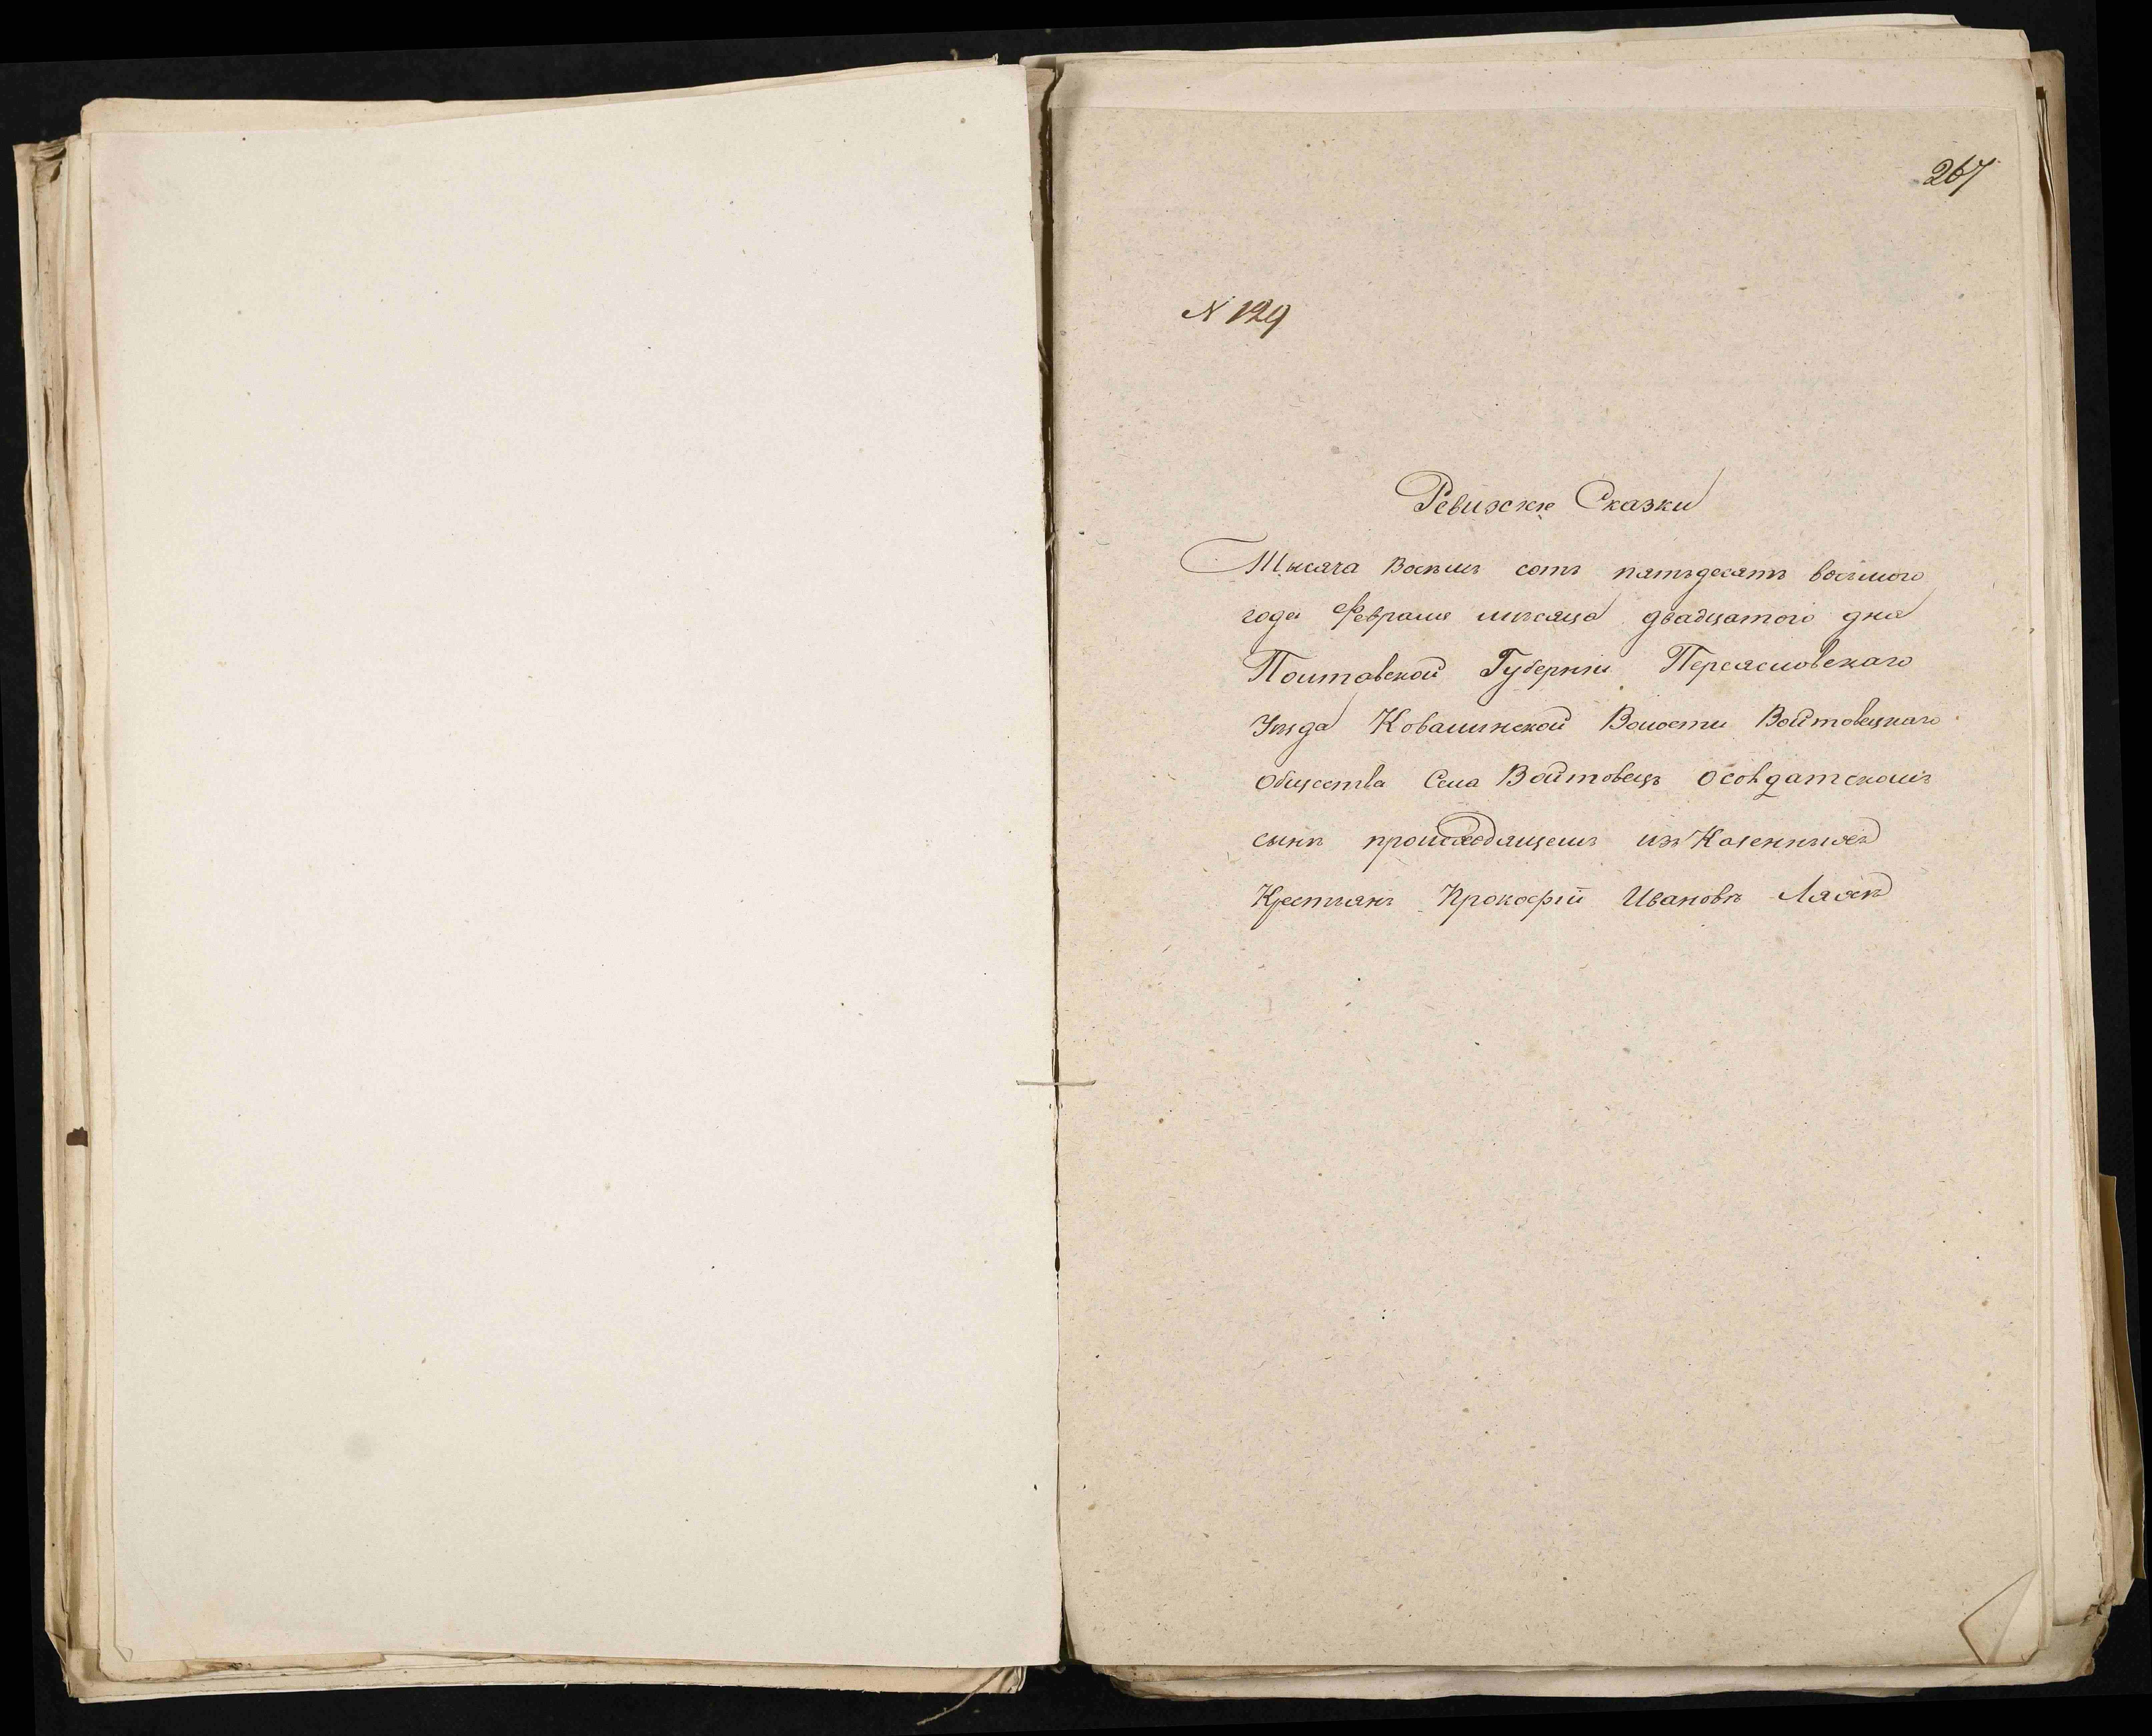 267
N 129
Ревизскіе Сказки
Тысяча Восемъ сотъ пятьдесятъ восьмого
года Февраля мѣсяца двадцатого дня
Полтавской Губерніи Переясловского
Уѣзда Ковалинской Волости Войтовецкаго
Общества Села Войтовецъ Осолдатскомъ
сынѣ происходящемъ изъ Казенныхъ
Крестьянъ Прокофій Ивановъ Ляхъ